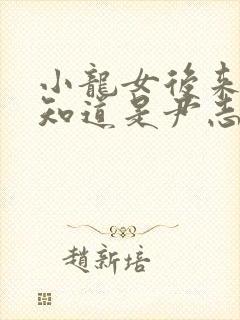 小龍女後來
知道是尹志
趙新培